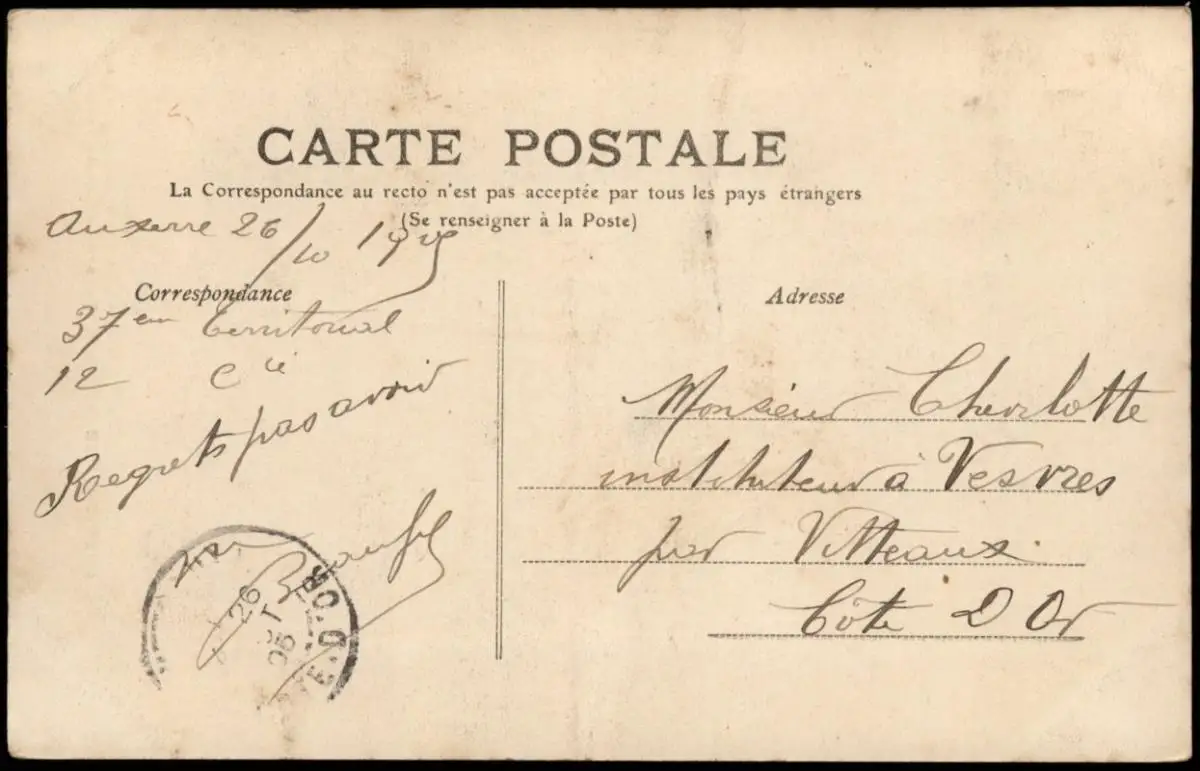 CARTE POSTALE
La Correspondance au recto n'est pas acceptée par tous les pays étrangers
(Se renseigner à la Poste)
Auxerre 26/10 1905
Correspondance
37em territorial
12 Cie
Regrets pas avoir
vu
26
OCT
05
CÔTE-D'OR
Adresse
Monsieur Cherlotte
instituteur à Vesvres
par Vitteaux
Côte D Or